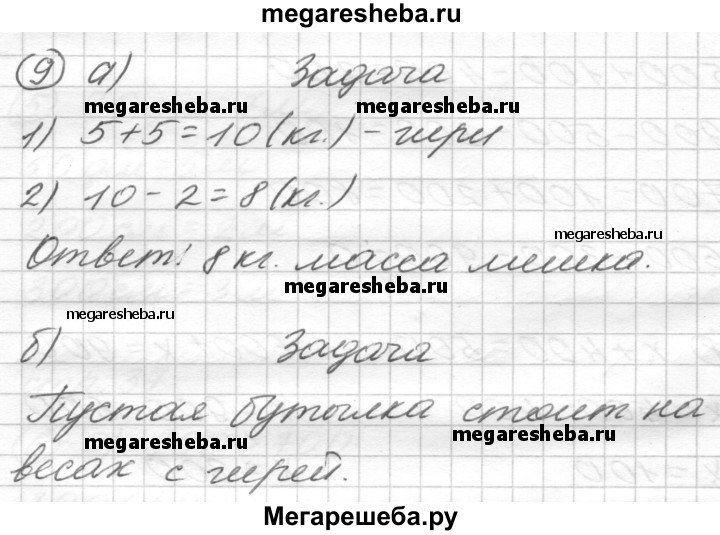 megaresheba.ru
9 а) Задача
megaresheba.ru megaresheba.ru
1) 5+5=10(кг.) - гири
2) 10-2=8(кг.)
megaresheba.ru
Ответ: 8 кг. масса мешка.
megaresheba.ru
megaresheba.ru
б) Задача
Пустая бутылка стоит на
megaresheba.ru megaresheba.ru
весах с гирей.
Мегарешеба.ру